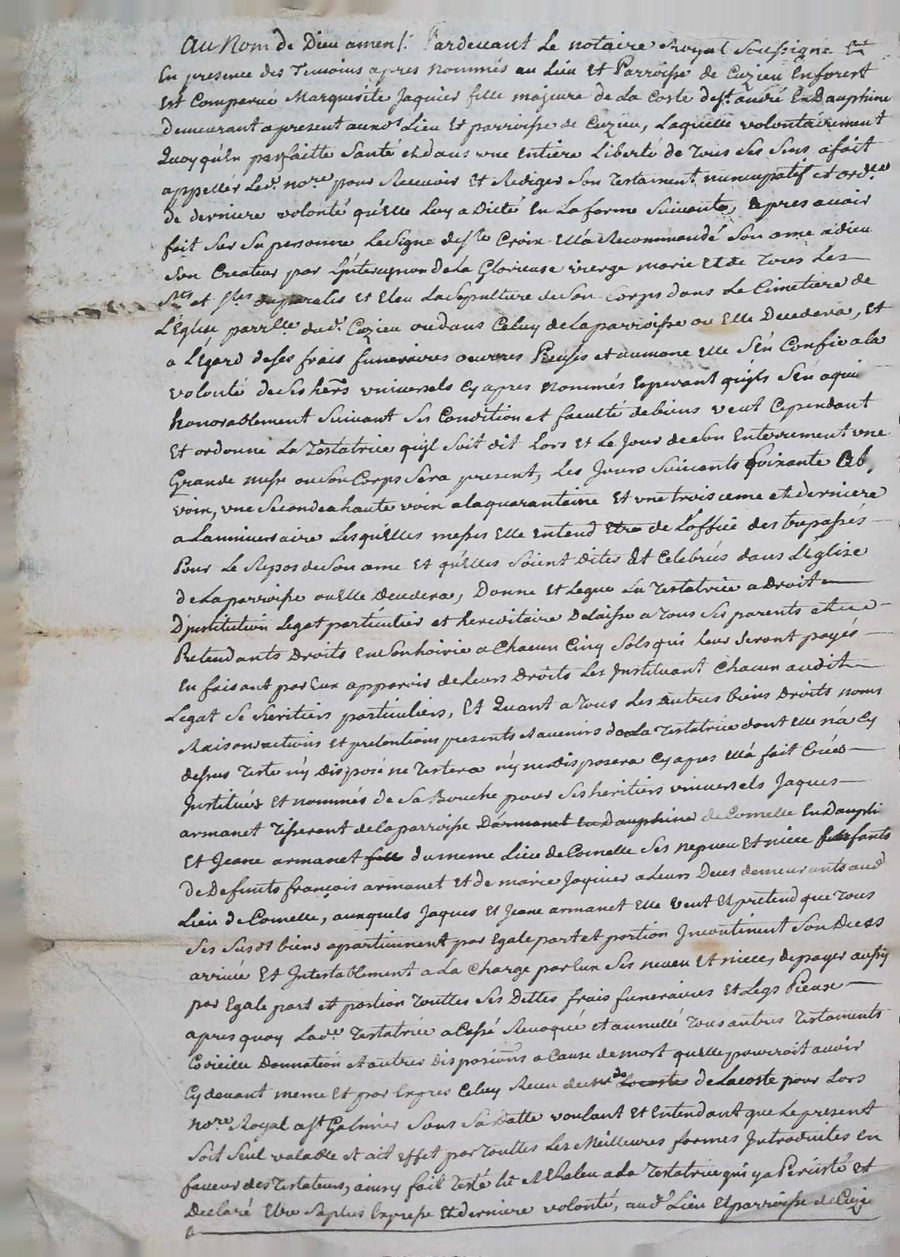 Au Nom de Dieu amen /. Pardevant Le notaire Royal Soussigné Et
En presence des Temoins apres nommés au Lieu Et Parroisse de Cuzieu Enforest
Est Comparüe Marguerite Jaquier fille majeure de La Coste de st. andré En Dauphine
demeurant apresent audt. Lieu Et parroisse de Cuzieu, Laquelle volontairement
Quoy qu'En parfaitte Santé et dans une Entiere Liberté de Tous Ses Sens a fait
appeller Ledt. nore. pour Recevoir Et Rediger Son Testament nuncupatif et ordce
de derniere volonté qu'Elle Luy a Dicté En La forme Suivante, apres avoir
fait Sur Sa personne Le Signe de ste. Croix Ella Recommandé Son ame a dieu
Son Createur par L'intercession de La Glorieuse vierge marie Et de Tous Les
sts et stes du paradis Et Eleu La Sepulture de Son Corps dans Le Cimetiere de
L'Eglise parrlle. dudt. Cuzieu ou dans Celuy de La parroisse ou Elle Decedera, Et
a L'égard de Ses frais funeraires oeuvres Pieuses et aumone Elle S'En Confie a la
volonté de Ses hers universels Cy apres nommés Esperant qu'ils S'En
honorablement Suivant Ses Condition et faculté de biens veut Cependant
Et ordonne La Testatrice qu'il Soit dit Lors et Le Jour de Son Enterrement une
Grande messe ou Son Corps Sera present, Les Jours Suivants Soixante a b.
voix, une Seconde a haute voix a la quarantaine Et une troisieme et derniere
a L'anniversaire Lesquelles messes Elle entend Etre de L'office des trepassés
Pour Le Repos de Son ame Et qu'Elles Soient Dites Et Celebrés dans L'Eglise
de La parroisse ou Elle Decedera, Donne Et Legue La Testatrice a Droit
D'institution Legat particulier et hereditaire Delaisse a Tous Ses parents et
Pretendants Droits En Son hoirie a Chacun Cinq Sols qui Leur Seront payés
En faisant par Eux apparoir de Leurs Droits Les Instituant Chacun audit
Legat Ses heritiers particuliers, Et Quant a Tous Les autres biens Droits noms
Raisons actions Et pretentions presents Et avenirs de La Testatrice dont Elle n'a Cy
dessus Testé n'y Disposé ne Testera n'y ne disposera Cy apres Ella fait Créé
Institués Et nommés de Sa Bouche pour Ses heritiers universels Jaques
armanet Tisserant de La parroisse Darmanet En Dauphine de Comelle En Dauphi
Et Jeane armanet fille du meme Lieu de Comelle Ses nepveu Et niece fants
de Defunts françois armanet Et de marie Jaquier a Leurs Deces demeurants aud
Lieu de Comelle, auxquels Jaques Et Jeane armanet Elle veut Et pretend que Tous
Ses Susdt biens apartiennent par Egale part et portion Incontinent Son Deces
arrivée Et Intestablement a La Charge par Eux Ses neveu Et niece, de payer aussy
par Egale part et portion Touttes Ses Dettes frais funeraires Et Legs Pieux
apres quoy Lade. Testatrice a Cassé Revoqué et annullé Tous autres Testaments
Codicille Donnation et autres Dispositions a Cause de mort qu'Elle pourroit avoir
Cy devant meme Et par Expres Celuy Receu de La Coste de Lacoste pour Lors
nore Royal a st Galmier Sous Sa Datte voulant Et Entendant que Le present
Soit Seul valable Et ait Effet par Touttes Les Meilleures formes Introduites En
faveur des Testateurs, ainsy fait Testé Lu Et Releu a La Testatrice qui y a Persisté Et
Declaré Etre Sa plus Expresse Et derniere volonté, audt. Lieu Et parroisse de Cuzi